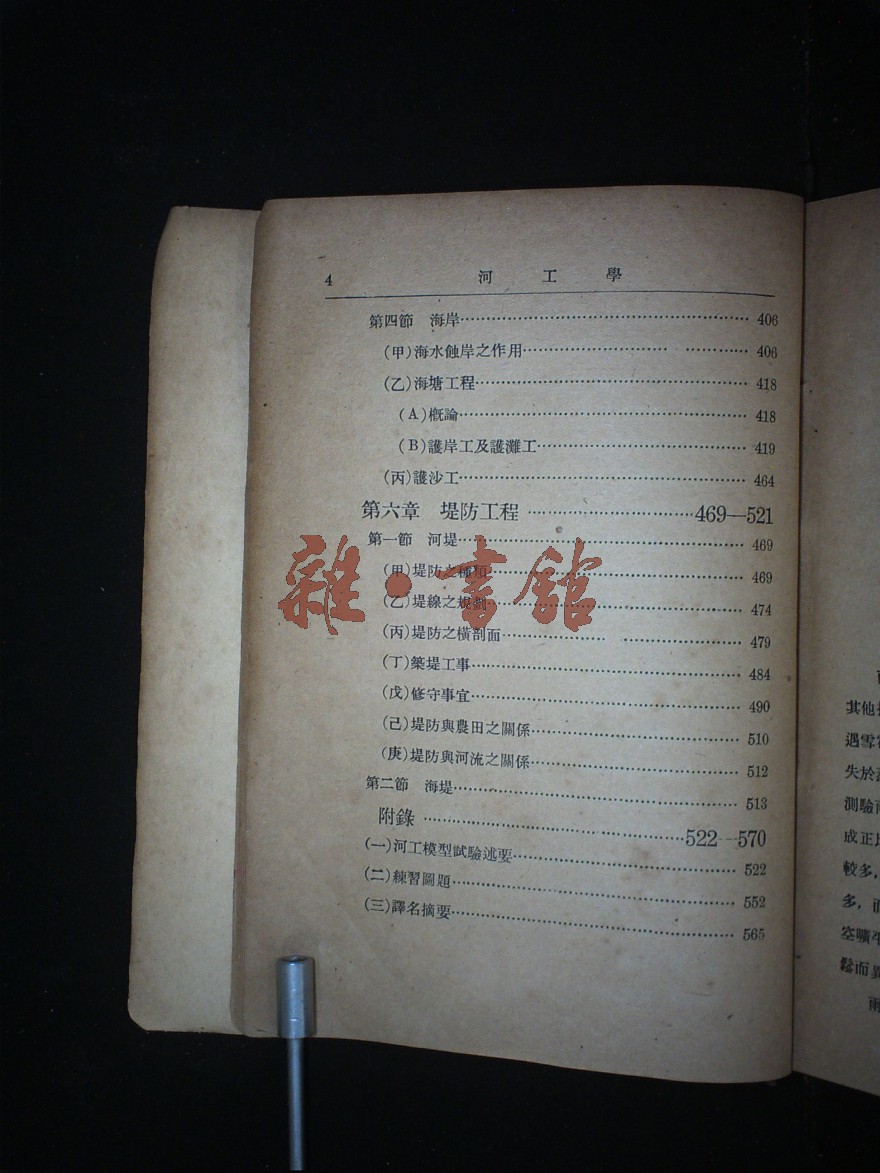 4 河工學
第四節 海岸 406
(甲)海水蝕岸之作用 406
(乙)海塘工程 418
(A)概論 418
(B)護岸工及護灘工 419
(丙)護沙工 464
第六章 堤防工程 469—521
第一節 河堤 469
(甲)堤防之種類 469
(乙)堤線之規劃 474
(丙)堤防之橫剖面 479
(丁)築堤工事 484
(戊)修守事宜 490
(己)堤防與農田之關係 510
(庚)堤防與河流之關係 512
第二節 海堤 513
附錄 522—570
(一)河工模型試驗述要 522
(二)練習圖題 552
(三)譯名摘要 565
雜·書館
其他
遇雪
失於
測驗
成正比
較多，
多，而
鬆而異
雨